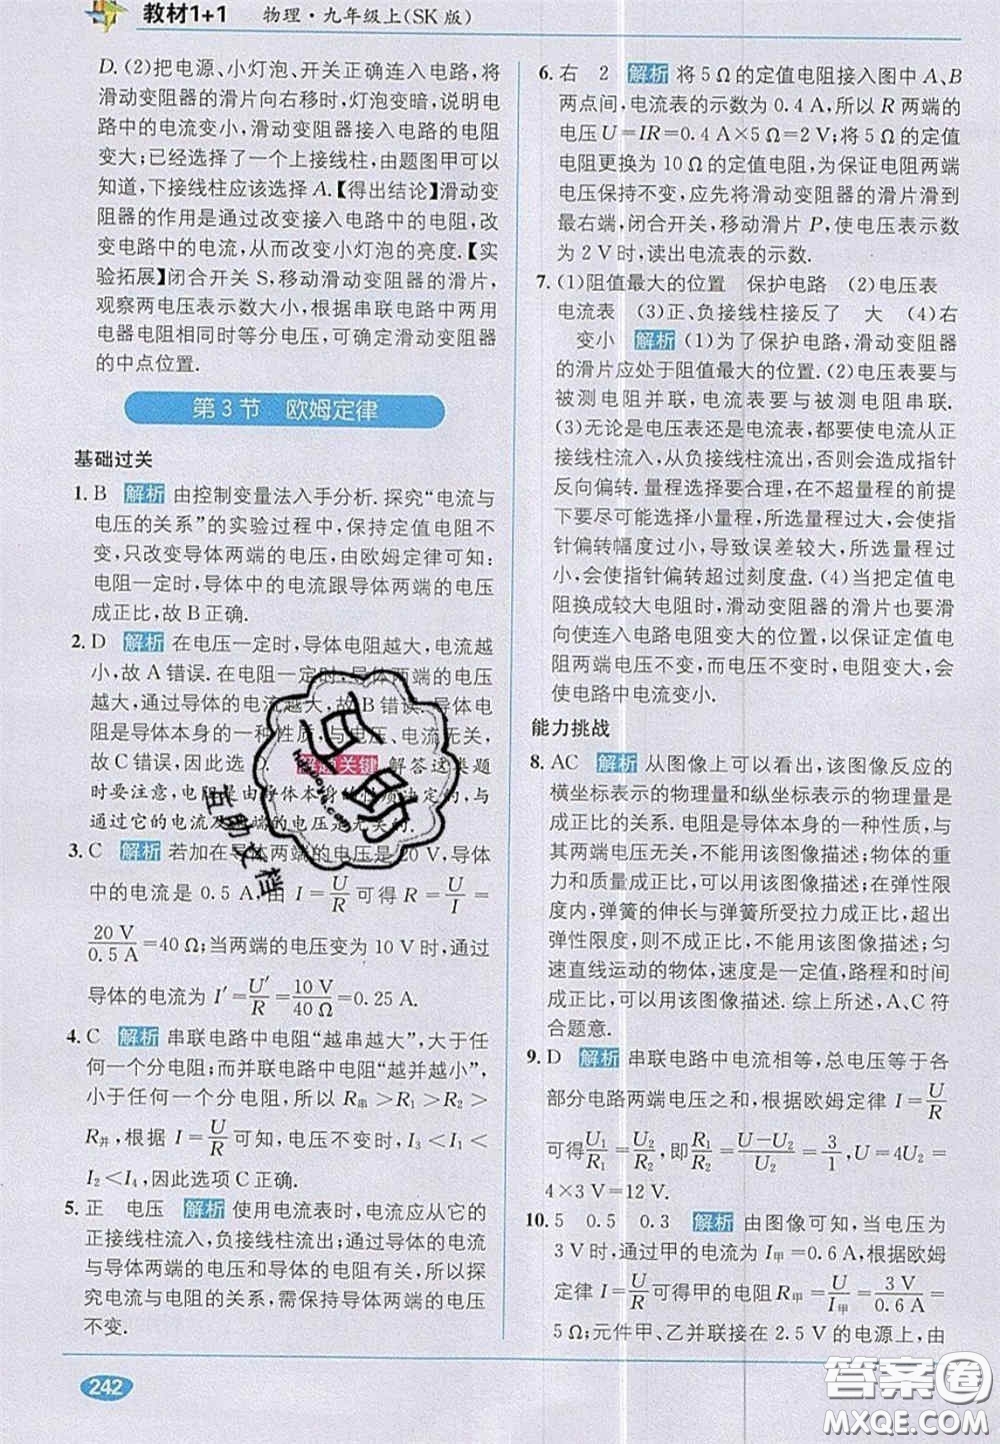 教材1+1 物理·九年级上(SK版)
D.(2)把电源、小灯泡、开关正确连入电路,将
滑动变阻器的滑片向右移时,灯泡变暗,说明电
路中的电流变小,滑动变阻器接入电路的电阻
变大;已经选择了一个上接线柱,由题图甲可以
知道,下接线柱应该选择A.【得出结论】滑动变
阻器的作用是通过改变接入电路中的电阻,改
变电路中的电流,从而改变小灯泡的亮度.【实
验拓展】闭合开关S,移动滑动变阻器的滑片,
观察两电压表示数大小,根据串联电路中两用
电器电阻相同时等分电压,可确定滑动变阻器
的中点位置.
第3节 欧姆定律
基础过关
1. B 解析 由控制变量法入手分析.探究“电流与
电压的关系”的实验过程中,保持定值电阻不
变,只改变导体两端的电压,由欧姆定律可知:
电阻一定时,导体中的电流跟导体两端的电压
成正比,故B正确.
2. D 解析 在电压一定时,导体电阻越大,电流越
小,故A错误.在电阻一定时,导体两端的电压
越大,通过导体的电流越大,故B错误.
电阻是导体本身的一种性质,与电压、电流无关,
故C错误,因此选D. 解题关键 解答这类题
时要注意,电阻是由导体本身的性质决定的,与
通过它的电流及两端的电压是无关的.
3. C 解析 若加在导体两端的电压是20 V,导体
中的电流是0.5 A.由I=U/R可得R=U/I=
20 V/0.5 A=40 Ω;当两端的电压变为10 V时,通过
导体的电流为I′=U′/R=10 V/40 Ω=0.25 A.
4. C 解析 串联电路中电阻“越串越大”,大于任
何一个分电阻;而并联电路中电阻“越并越小”,
小于任何一个分电阻,所以R串>R1>R2>
R并,根据I=U/R可知,电压不变时,I3<I1<
I2<I4,因此选项C正确.
5. 正 电压 解析 使用电流表时,电流应从它的
正接线柱流入,负接线柱流出;通过导体的电流
与导体两端的电压和导体的电阻有关,所以探
究电流与电阻的关系,需保持导体两端的电压
不变.
6. 右 2 解析 将5 Ω的定值电阻接入图中A、B
两点间,电流表的示数为0.4 A,所以R两端的
电压U=IR=0.4 A×5 Ω=2 V;将5 Ω的定值
电阻更换为10 Ω的定值电阻,为保证电阻两端
电压保持不变,应先将滑动变阻器的滑片滑到
最右端,闭合开关,移动滑片P,使电压表示数
为2 V时,读出电流表的示数.
7. (1)阻值最大的位置 保护电路 (2)电压表
电流表 (3)正、负接线柱接反了 大 (4)右
变小 解析 (1)为了保护电路,滑动变阻器
的滑片应处于阻值最大的位置.(2)电压表应与
被测电阻并联,电流表应与被测电阻串联.
(3)无论是电压表还是电流表,都要使电流从正
接线柱流入,负接线柱流出,否则会造成指针
反向偏转.量程选择要合理,在不超量程的前提
下要尽可能选择小量程,所选量程过大,会使指
针偏转幅度过小,导致误差较大,所选量程过
小,会使指针偏转超过刻度盘.(4)当把定值电
阻换成较大电阻时,滑动变阻器的滑片也要滑
向使连入电路电阻变大的位置,以保证定值电
阻两端电压不变,而电压不变时,电阻变大,会
使电路中电流变小.
能力挑战
8. AC 解析 从图像上可以看出,该图像反应的
横坐标表示的物理量和纵坐标表示的物理量是
成正比的关系.电阻是导体本身的一种性质,与
其两端电压无关,不能用该图像描述;物体的重
力和质量成正比,可以用该图像描述;在弹性限
度内,弹簧的伸长与弹簧所受拉力成正比,超出
弹性限度,则不成正比,不能用该图像描述;匀
速直线运动的物体,速度是一定值,路程和时间
成正比,可以用该图像描述.综上所述,A、C符
合题意.
9. D 解析 串联电路中电流相等,总电压等于各
部分电路两端电压之和,根据欧姆定律I=U/R
可得U1/R1=U2/R2,即R1/R2=U-U2/U2=3/1,U=4U2=
4×3 V=12 V.
10. 5 0.5 0.3 解析 由图像可知,当电压为
3 V时,通过甲的电流为I甲=0.6 A,根据欧姆
定律I=U/R可得甲的电阻R甲=U/I甲=3 V/0.6 A=
5 Ω;元件甲、乙并联接在2.5 V的电源上,由
242
互助文档
答案圈
MXQE.COM